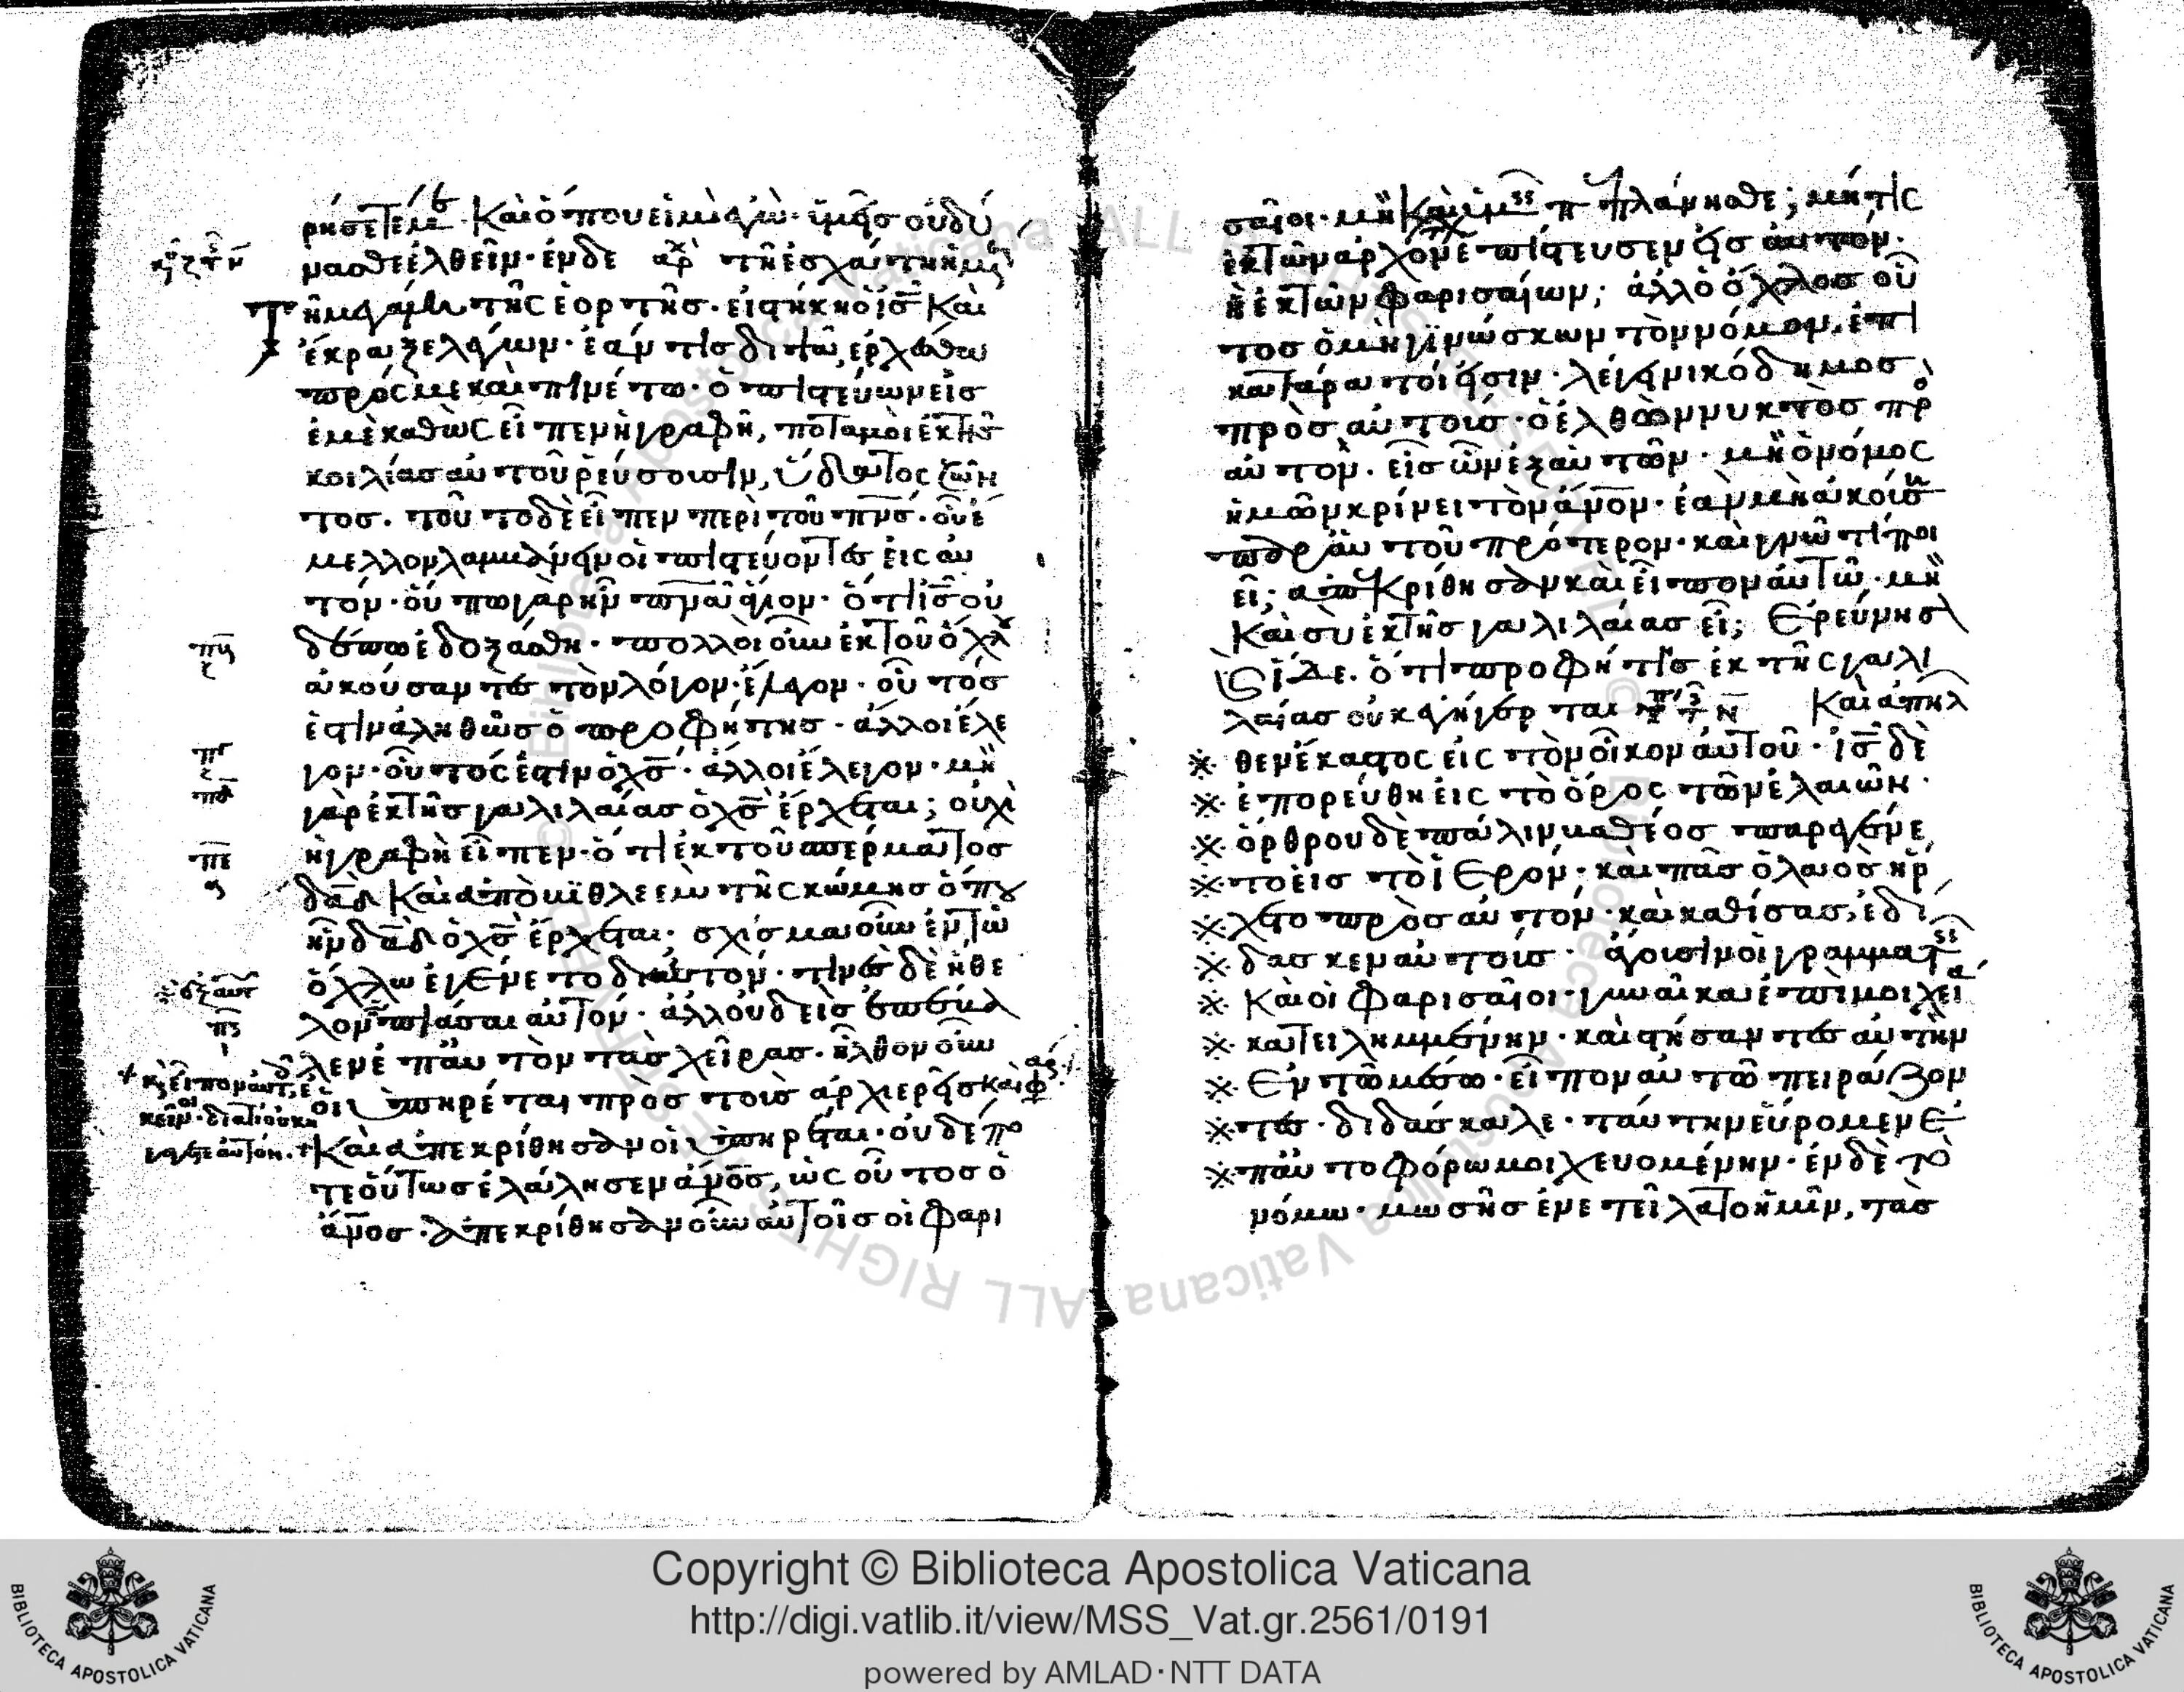 ρήσετέ με. Καὶ ὅπου εἰμὶ ἐγὼ. ὑμεῖς οὐ δύ
νασθε ἐλθεῖν. ἐνδε αρχ τῆ ἐσχάτη ἡμ
Τῆ μεγάλη τῆς ἑορτῆς. εἱστήκη ὁ ις Καὶ
ἔκραξε λέγων. ἐάν τις διψᾶ, ἐρχέσθω
πρός με καὶ πινέτω. ὁ πιστεύων εἰς
ἐμὲ καθὼς εἶπεν ἡ γραφὴ, ποταμοὶ ἐκ τῆς
κοιλίας αὐτοῦ ῥεύσουσιν, ὕδατος ζῶν
τος. τοῦτο δὲ εἶπεν περὶ τοῦ πνς. οὗ ἔ
μελλον λαμβάνειν οἱ πιστεύοντες εἰς αὐ
τόν. οὔπω γὰρ ἦν πνα ἅγιον. ὅτι ις οὐ
δέπω ἐδοξάσθη. πολλοὶ οὖν ἐκ τοῦ ὄχλου
ἀκούσαντες τὸν λόγον. ἔλεγον. οὗτός
ἐστιν ἀληθῶς ὁ προφήτης. ἄλλοι ἔλε
γον. οὗτός ἐστιν ὁ χς. ἄλλοι ἔλεγον. μὴ
γὰρ ἐκ τῆς γαλιλαίας ὁ χς ἔρχεται; οὐχὶ
ἡ γραφὴ εἶπεν. ὅτι ἐκ τοῦ σπέρματος
δαδ Καὶ ἀπὸ βιθλεεὼ τῆς κώμης ὅπου
ἦν δαδ ὁ χς ἔρχεται; σχίσμα οὖν ἐν τῶ
ὄχλω ἐγένετο δι αὐτόν. τινὲς δὲ ἤθε
λον πιάσαι αὐτόν. ἀλλ οὐδεὶς ἐπέβα
λεν ἐπ αὐτὸν τὰς χεῖρας. ἦλθον οὖν
οἱ ὑπηρέται πρὸς τοὺς ἀρχιερεῖς Καὶ φ
Καὶ ἀπεκρίθησαν οἱ ὑπηρέται. οὐδέπο
τε οὕτως ἐλάλησεν ανος, ὡς οὗτος ὁ
ανος. ἀπεκρίθησαν οὖν αὐτοῖς οἱ φαρι
σαῖοι. μὴ Καὶ ὑμεῖς πεπλάνησθε; μή τις
ἐκ τῶν ἀρχόν ἐπίστευσεν εἰς αὐτὸν.
ἢ ἐκ τῶν φαρισαίων; ἀλλ ὁ ὄχλος οὗ
τος ὁ μὴ γινώσκων τὸν νόμον, ἐπι
κατάρατοί εἰσιν. λέγει νικόδημος
πρὸς αὐτούς. ὁ ἐλθὼν νυκτὸς πρὸ
αὐτὸν. εἷς ὢν ἐξ αὐτῶν. μὴ ὁ νόμος
ἡμῶν κρίνει τὸν ανον. ἐὰν μὴ ἀκούση
παρ αὐτοῦ πρότερον. καὶ γνῶ τί ποι
εῖ; ἀπεκρίθησαν καὶ εἶπον αὐτῶ. μὴ
Καὶ σὺ ἐκ τῆς γαλιλαίας εἶ; Ἐρεύνησ
ἴδε. ὅτι προφήτης ἐκ τῆς γαλι
λαίας οὐκ ἐγήγερται Καὶ ἀπῆλ
※ θεν ἕκαστος εἰς τὸν οἶκον αὐτοῦ. ις δὲ
※ ἐπορεύθη εἰς τὸ ὄρος τῶν ἐλαιῶν.
※ ὄρθρου δὲ πάλιν βαθέος παρεγένε
※ το εἰς τὸ ἱερόν. καὶ πᾶς ὁ λαὸς ἤρ
※ χετο πρὸς αὐτόν. καὶ καθίσας, ἐδί
※ δασκεν αὐτούς. ἄγουσιν οἱ γραμματεῖς
※ Καὶ οἱ φαρισαῖοι. γυναῖκα ἐπὶ μοιχεία
※ κατειλημμένην. καὶ στήσαντες αὐτὴν
※ ἐν τῶ μέσω. εἶπον αὐτῶ πειράζον
※ τες. διδάσκαλε. ταύτην εὕρομεν ἐ
※ παυτοφόρω μοιχευομένην. ἐν δὲ τῶ
νόμω. μωσῆς ἐνετείλατο ἡμῖν, τὰς
Copyright © Biblioteca Apostolica Vaticana
http://digi.vatlib.it/view/MSS_Vat.gr.2561/0191
powered by AMLAD·NTT DATA
BIBLIOTECA APOSTOLICA VATICANA
BIBLIOTECA APOSTOLICA VATICANA